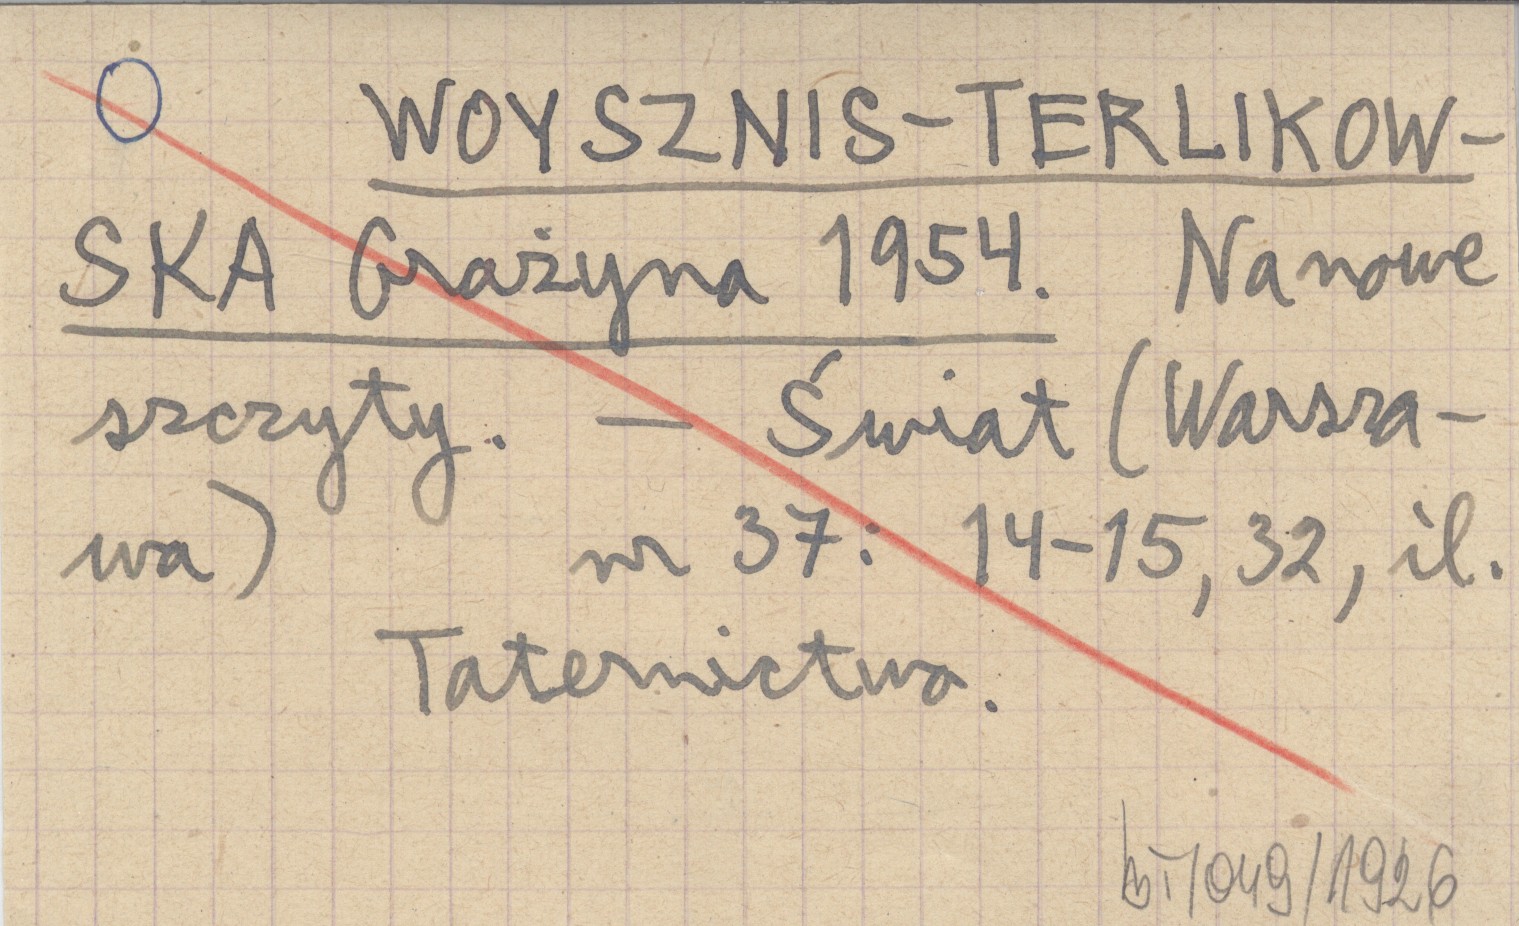 WOYSZNIS-TERLIKOW-
SKA Grażyna 1954. Na nowe
szczyty. — Świat (Warsza-
wa) nr 37: 14-15, 32, il.
Taternictwo.
bT/049/1926